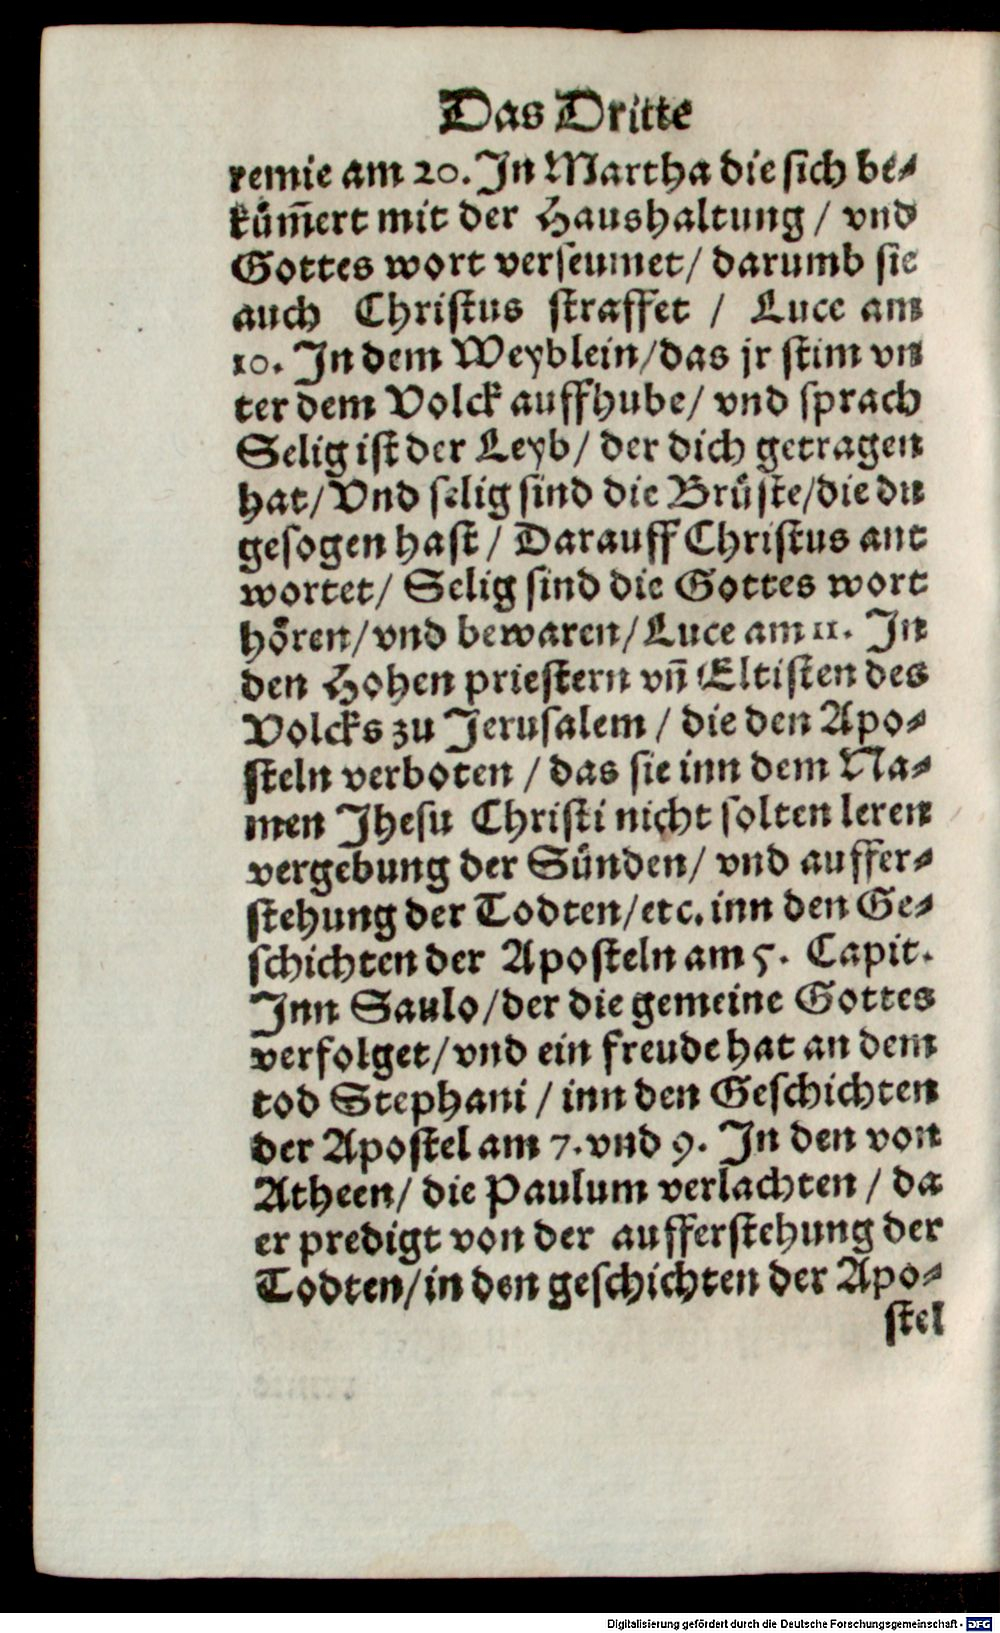 Das Dritte
remie am 20. In Martha die sich be⸗
kům̃ert mit der Haushaltung / vnd
Gottes wort verseumet/ darumb sie
auch Christus straffet / Luce am
10. In dem Weyblein/das jr stim vn
ter dem Volck auffhube/ vnd sprach
Selig ist der Leyb/ der dich getragen
hat/ Vnd selig sind die Brůste/die du
gesogen hast / Darauff Christus ant
wortet/ Selig sind die Gottes wort
hȯren/vnd bewaren/Luce am 11. In
den Hohen priestern vñ Eltisten des
Volcks zu Jerusalem / die den Apo⸗
steln verboten / das sie inn dem Na⸗
men Jhesu Christi nicht solten leren
vergebung der Sůnden/ vnd auffer⸗
stehung der Todten/etc. inn den Ge⸗
schichten der Aposteln am 5. Capit.
Inn Saulo/der die gemeine Gottes
verfolget/vnd ein freude hat an dem
tod Stephani / inn den Geschichten
der Apostel am 7. vnd 9. In den von
Atheen/ die Paulum verlachten / da
er predigt von der aufferstehung der
Todten/in den geschichten der Apo⸗
stel
Digitalisierung gefördert durch die Deutsche Forschungsgemeinschaft - DFG